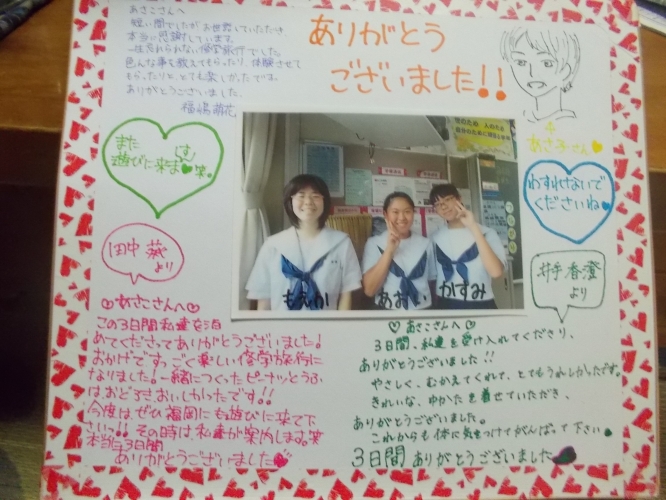 あさこさんへ
短い間でしたがお世話していただき
本当に感謝しています。
一生忘れられない修学旅行でした。
色んな事を教えてもらったり、体験させて
もらったりと、とても楽しかったです。
ありがとうございました。
福嶋 萌花
ありがとう
ございました!!
あさ子さん
また
遊びに来ます 笑。
わすれないで
くださいね
田中 葵
より
井手 香澄
より
もえか
あおい
かすみ
あさこさんへ
この3日間私達を泊
めてくださってありがとうございました!
おかげですっごく楽しい修学旅行に
なりました!一緒につくったピーナッツとうふ
はおどろきおいしかったです!!
今度はぜひ福岡にも遊びに来て下
さいっ!!その時は、私達が案内します。笑
本当に3日間
ありがとうございました
あさこさんへ
3日間、私達を受け入れてくださり、
ありがとうございました!!
やさしく、むかえてくれて、とてもうれしかったです。
きれいな、ゆかたを着せていただき、
ありがとうございました。
これからも体に気をつけてがんばって下さい
3日間ありがとうございました